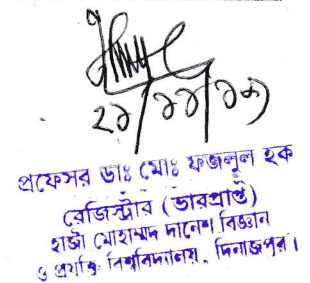 ২১/১১/১৩
প্রফেসর ডাঃ মোঃ ফজলুল হক
রেজিস্ট্রার (ভারপ্রাপ্ত)
হাজী মোহাম্মদ দানেশ বিজ্ঞান
ও প্রযুক্তি বিশ্ববিদ্যালয়, দিনাজপুর।